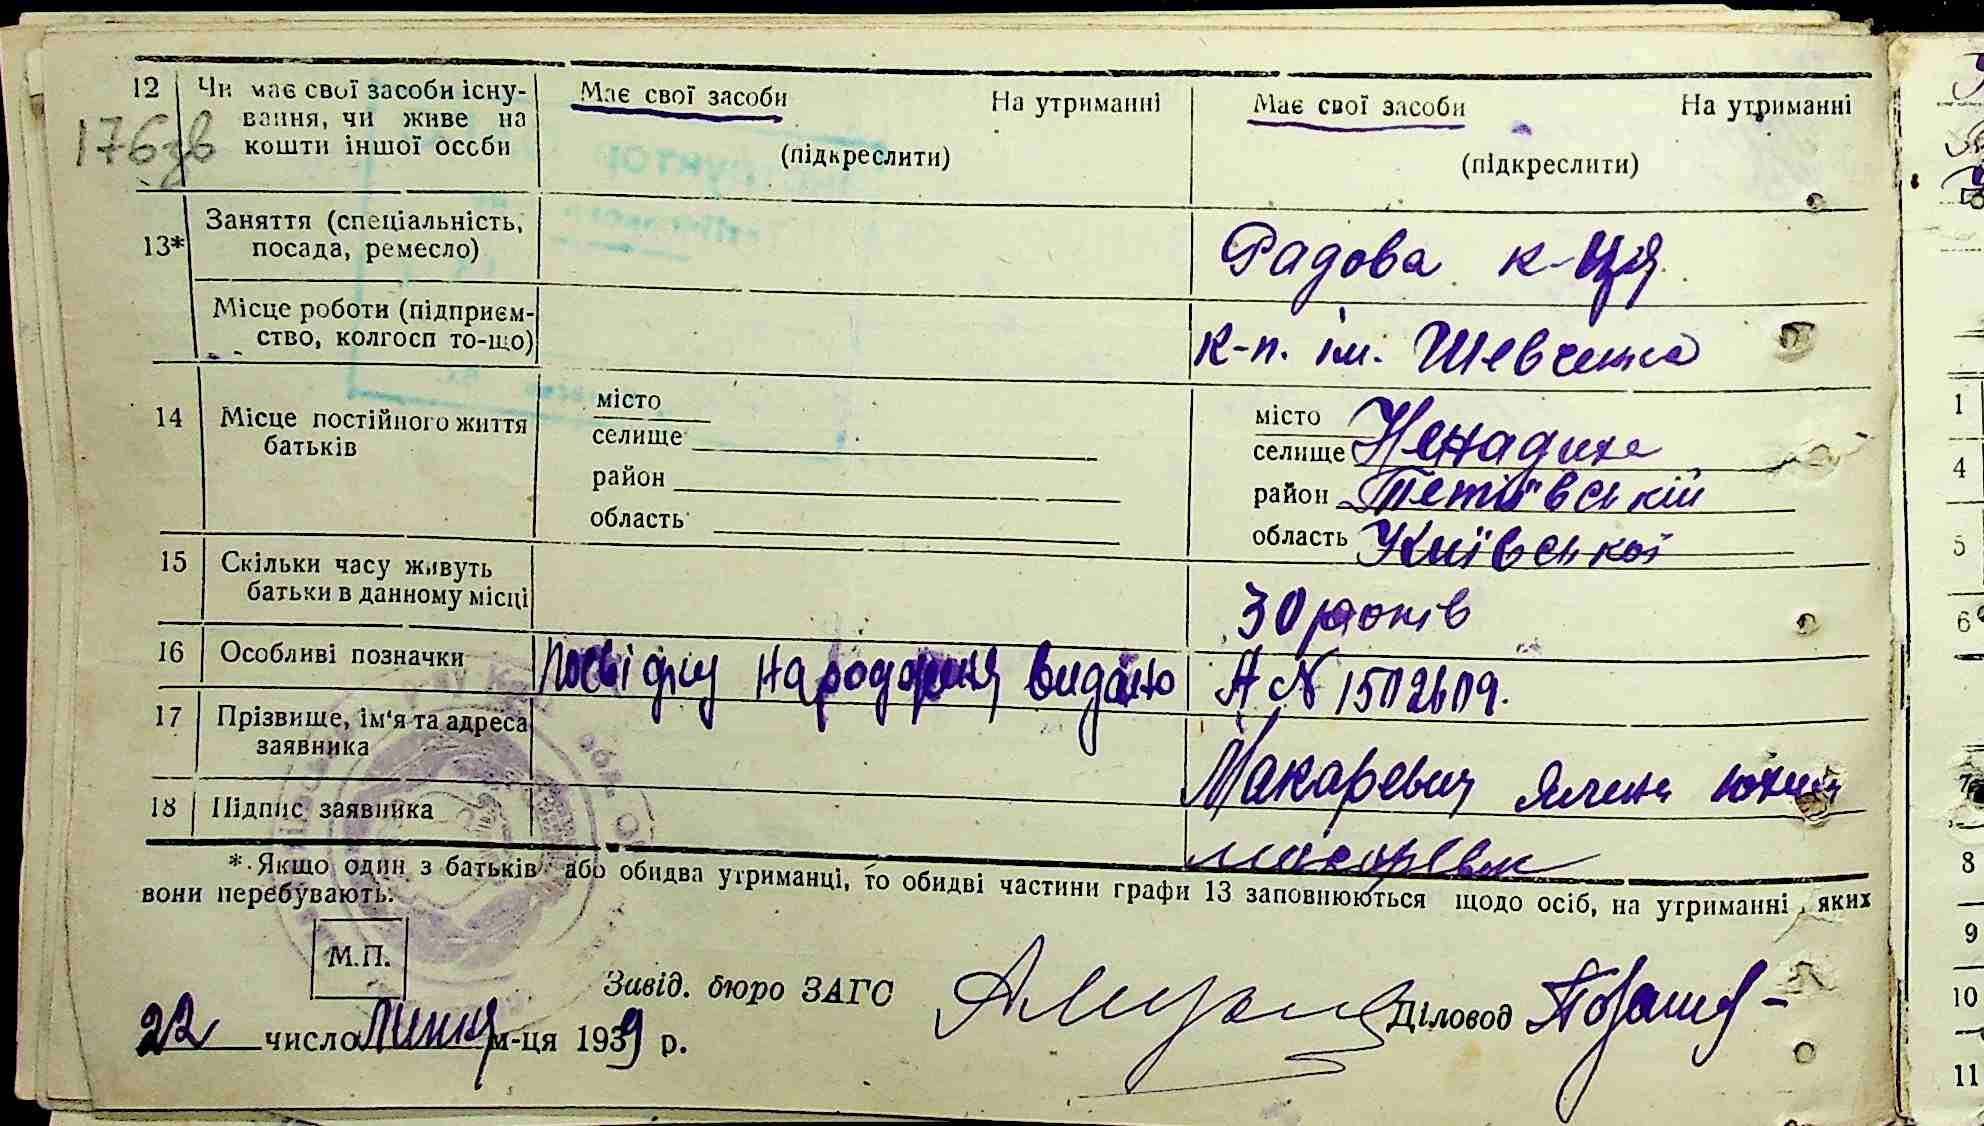 12 Чи має свої засоби існу-
вання, чи живе на
кошти іншої особи
Має свої засоби На утриманні
(підкреслити)
Має свої засоби На утриманні
(підкреслити)
176зв
13* Заняття (спеціальність,
посада, ремесло)
Радова к-ця
Місце роботи (підприєм-
ство, колгосп то-що)
к-п. ім. Шевченка
14 Місце постійного життя
батьків
місто
селище
район
область
місто
селище Ненадиха
район Тетіївській
область Київської
15 Скільки часу живуть
батьки в данному місці
30 років
16 Особливі позначки
Посвідку народження видано А № 1502609.
17 Прізвище, ім'я та адреса
заявника
Макаревич
18 Підпис заявника
Макаревич
*. Якщо один з батьків або обидва утриманці, то обидві частини графи 13 заповнюються щодо осіб, на утриманні яких
вони перебувають.
М.П.
Завід. бюро ЗАГС
Діловод
22 число Липня м-ця 1939 р.
1
4
5
6
8
9
10
11